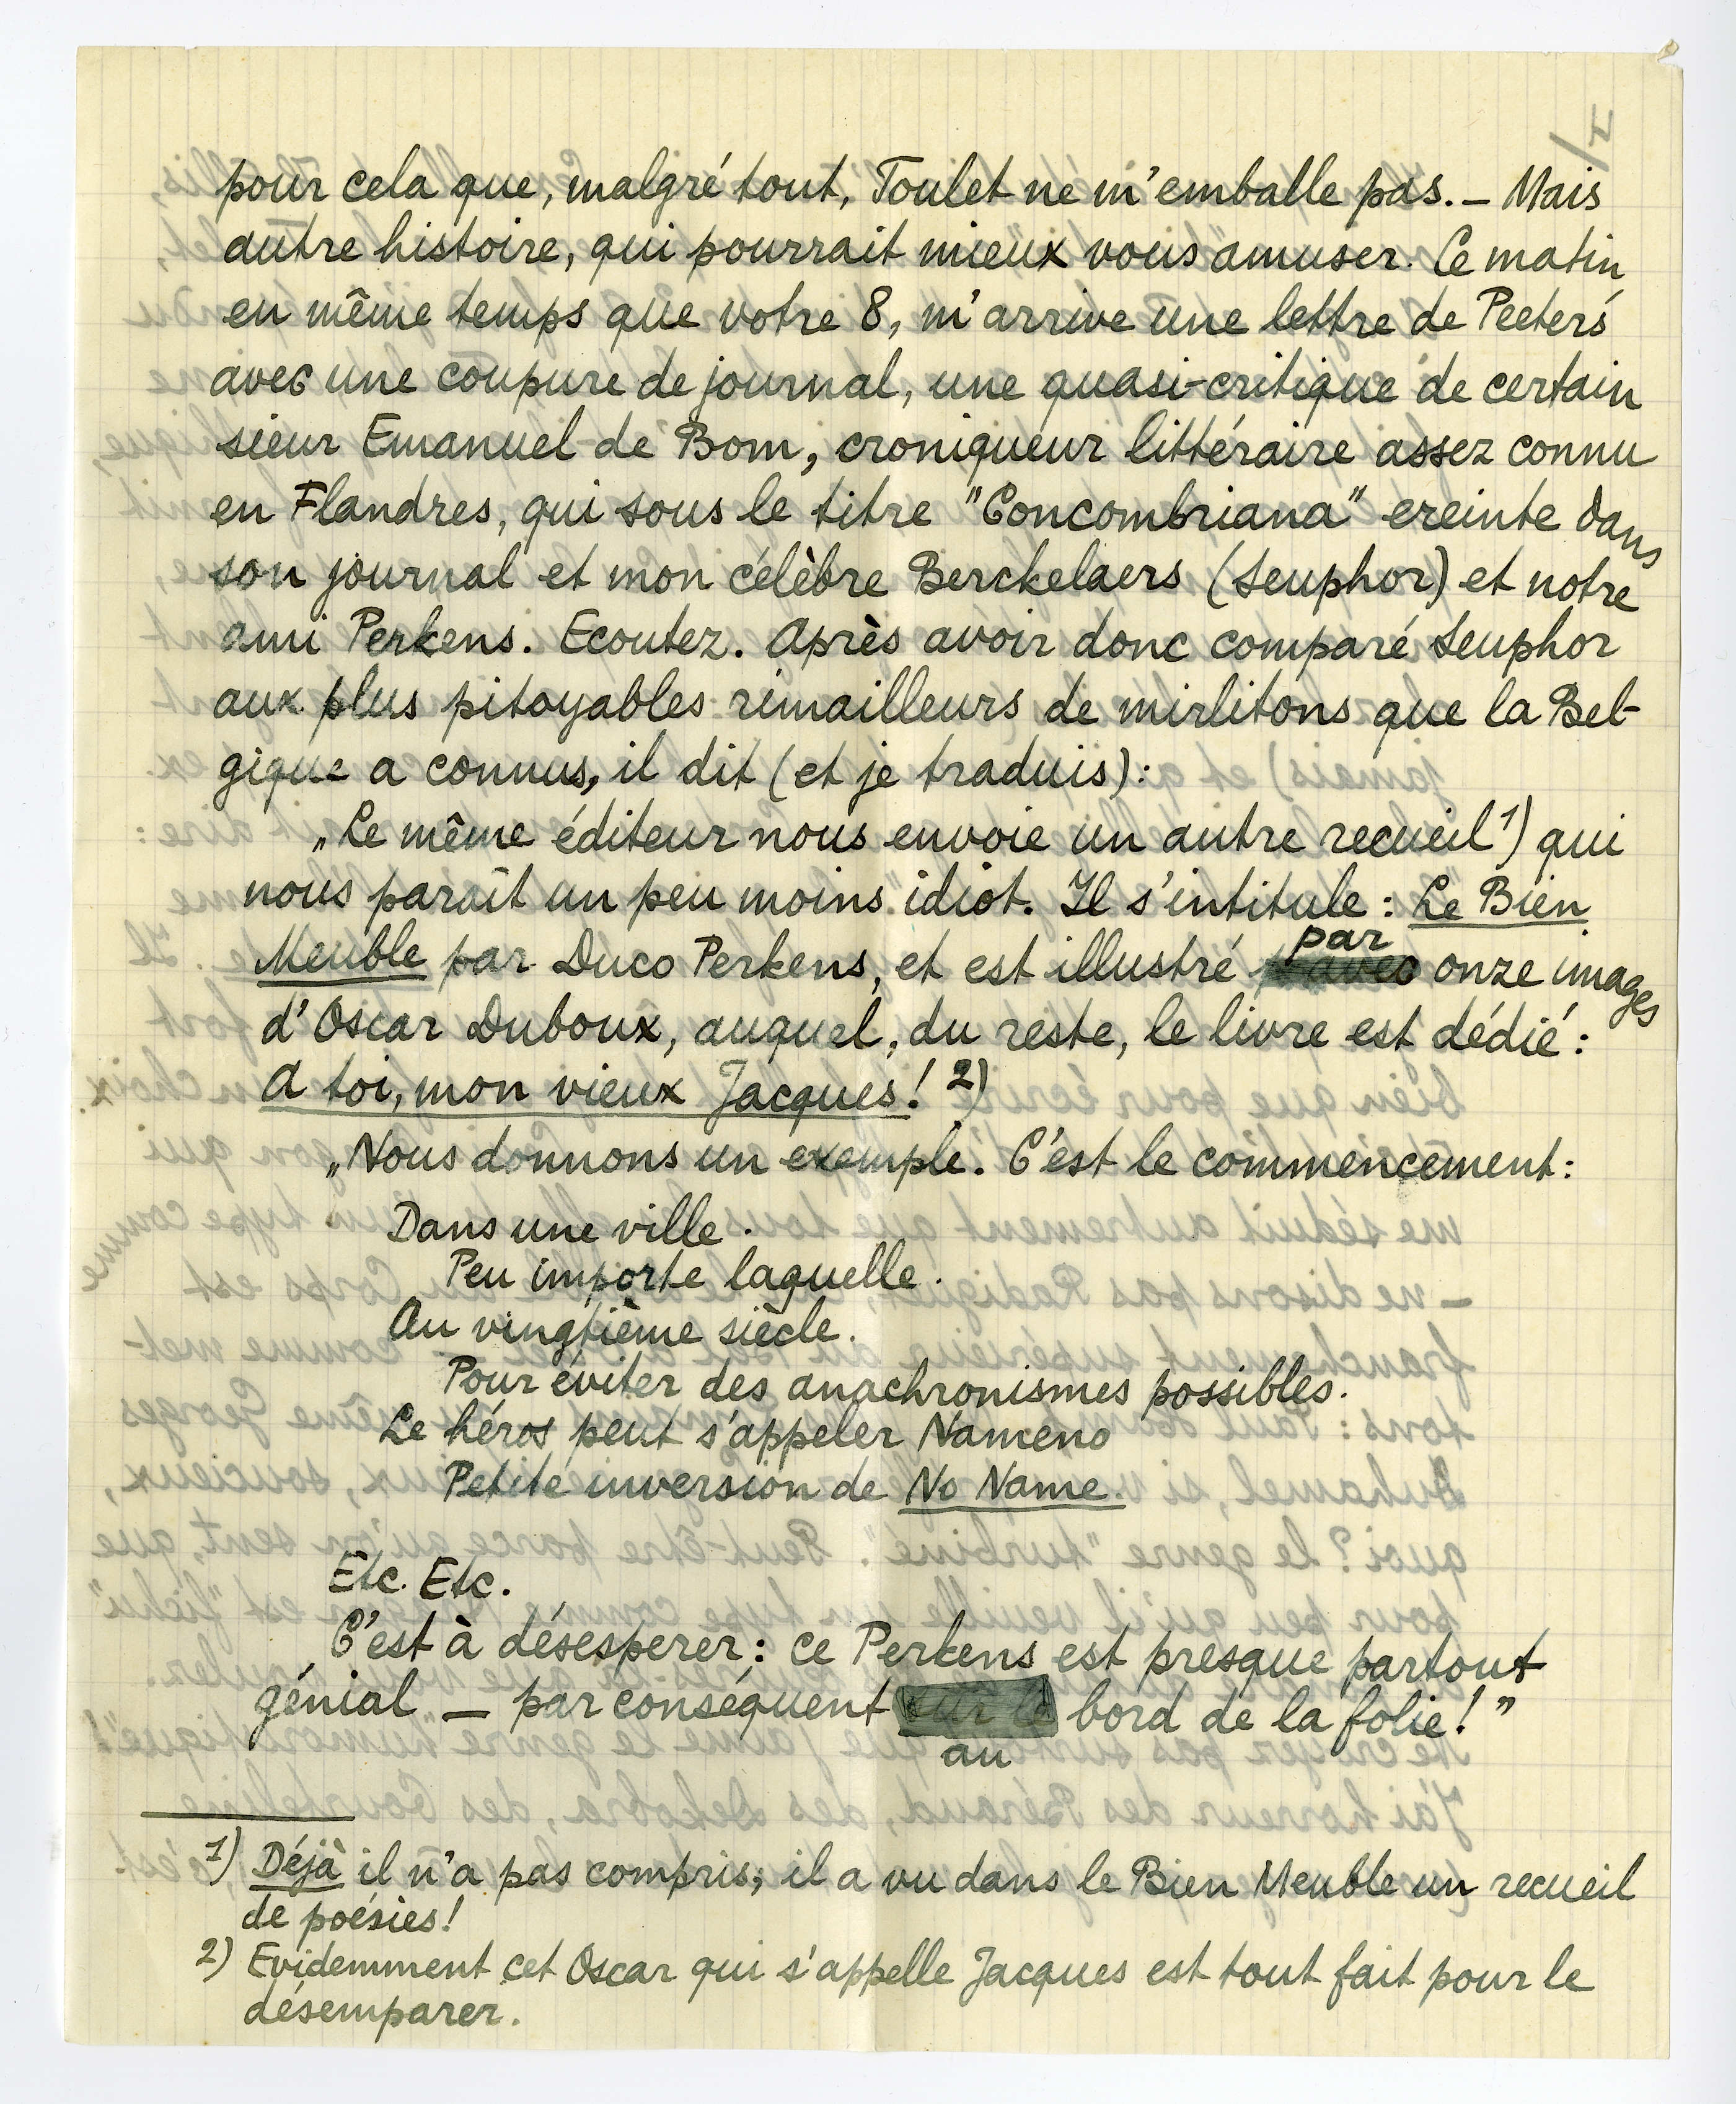 pour cela que, malgré tout, Toulet ne m'emballe pas. — Mais
autre histoire, qui pourrait mieux vous amuser. Ce matin,
en même temps que votre 8, m'arrive une lettre de Peeters
avec une coupure de journal, une quasi-critique de certain
sieur Emanuel de Bom, croniqueur littéraire assez connu
en Flandres, qui sous le titre "Concombriana" ereinte dans
son journal et mon célèbre Berckelaers (Seuphor) et notre
ami Perkens. Ecoutez. Après avoir donc comparé Seuphor
aux plus pitoyables rimailleurs de mirlitons que la Bel-
gique a connus, il dit (et je traduis):
„Le même éditeur nous envoie un autre recueil 1) qui
nous paraît un peu moins idiot. Il s'intitule: Le Bien
Meuble par Duco Perkens, et est illustré par onze images
d'Oscar Duboux, auquel, du reste, le livre est dédié:
A toi, mon vieux Jacques! 2)
„Nous donnons un exemple. C'est le commencement:
Dans une ville.
Peu importe laquelle.
Au vingtième siècle.
Pour éviter des anachronismes possibles.
Le héros peut s'appeler Nameno
Petite inversion de No Name.
Etc. Etc.
C'est à désesperer: ce Perkens est presque partout
génial — par conséquent au bord de la folie!"
1) Déjà il n'a pas compris; il a vu dans le Bien Meuble un recueil
de poésies!
2) Evidemment cet Oscar qui s'appelle Jacques est tout fait pour le
désemparer.